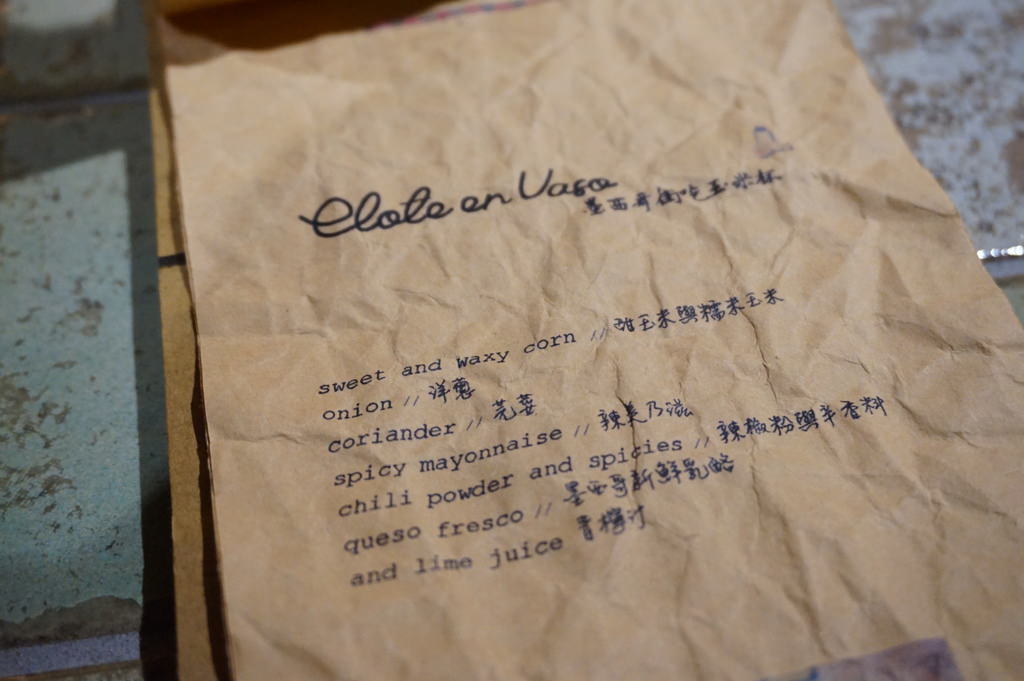 Elote en Vaso
墨西哥街吃玉米杯
sweet and waxy corn // 甜玉米與糯米玉米
onion // 洋蔥
coriander // 芫荽
spicy mayonnaise // 辣美乃滋
chili powder and spicies // 辣椒粉與辛香料
queso fresco // 墨西哥新鮮乳酪
and lime juice 青檸汁